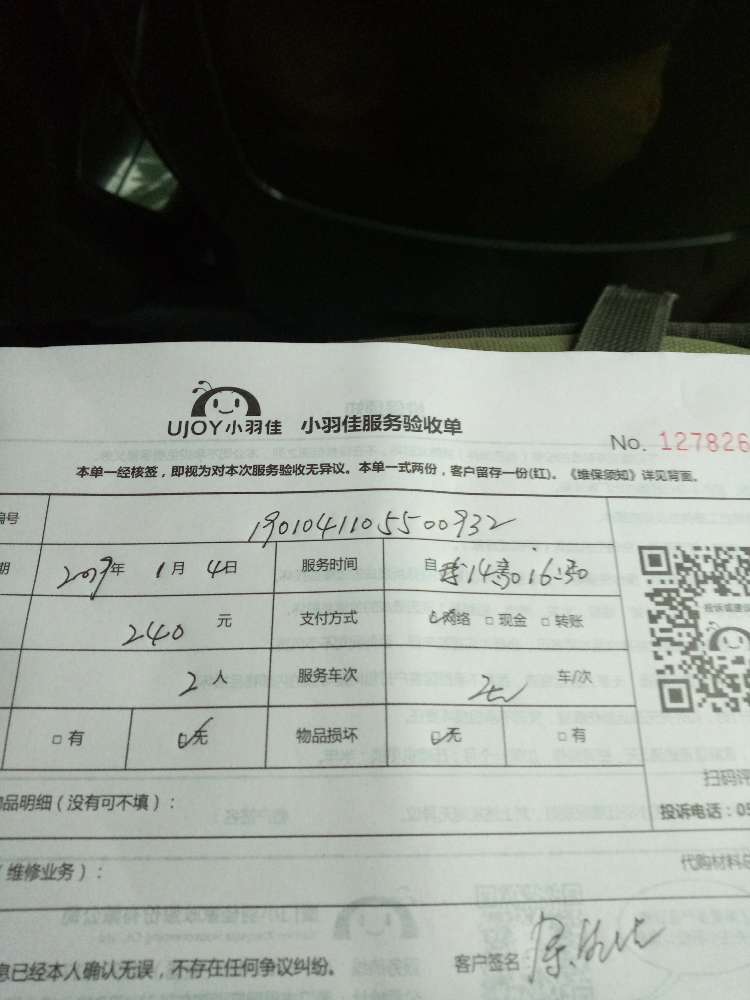 UJOY小羽佳 小羽佳服务验收单
No. 127826
本单一经核签，即视为对本次服务验收无异议。本单一式两份，客户留存一份(红)。《维保须知》详见背面。
编号 1901041105500932
期 2019年 1月 4日 服务时间 自 14:30 16:30
240 元 支付方式 ☑网络 □现金 □转账
2人 服务车次 车/次
□有 ☑无 物品损坏 ☑无 □有
投诉或建议
扫码评
物品明细（没有可不填）：
投诉电话：05
（维修业务）：
代购材料总
息已经本人确认无误，不存在任何争议纠纷。 客户签名